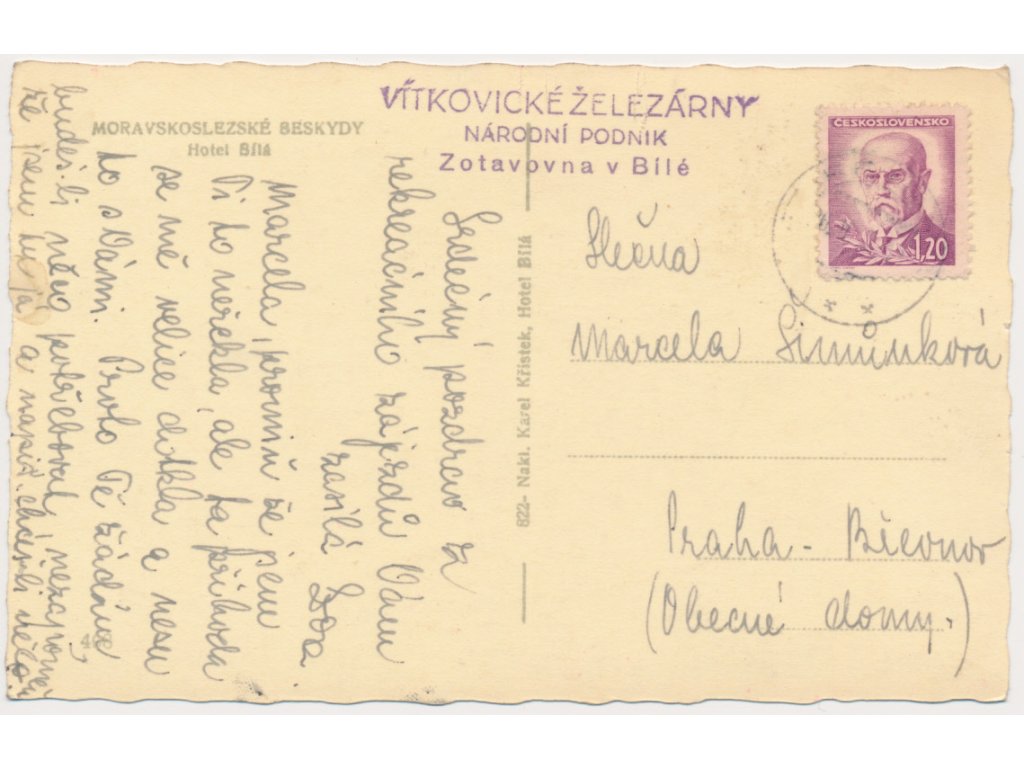 MORAVSKOSLEZSKÉ BESKYDY
Hotel Bílá
VÍTKOVICKÉ ŽELEZÁRNY
NÁRODNÍ PODNIK
Zotavovna v Bílé
ČESKOSLOVENSKO
1,20
Srdečný pozdrav za
rekreačního zájezdu Vám
zasílá
Marcela, promiň že jsem
Ti to neřekla, ale ta příhoda
se mě velice dotkla a nesu
to s Vámi. Proto Tě žádám
budeš-li něco potřebovat,
že jsem tu já a napiš
822- Nakl. Karel Křístek, Hotel Bílá
Slečna
Marcela Šimůnková
Praha - Břevnov
(Obecné domy.)